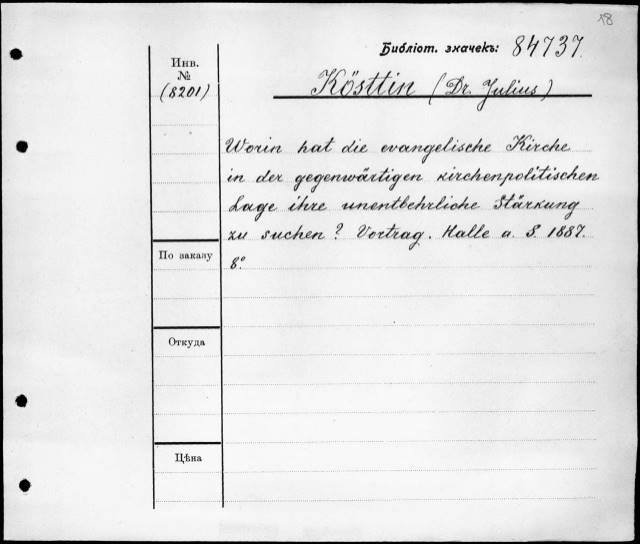 18
Библіот. значекъ: 84737.
Инв.
№
(8201)
Kösttin (Dr. Julius)
Worin hat die evangelische Kirche
in der gegenwärtigen kirchenpolitischen
Lage ihre unentbehrliche Stärkung
zu suchen? Vortrag. Halle a. S. 1887.
8°.
По заказу
Откуда
Цѣна